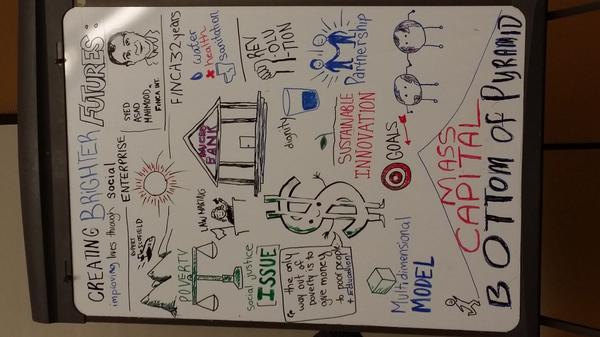 CREATING BRIGHTER FUTURES:
improving lives through social
ENTERPRISE
RUPERT
SCOFIELD
SYED
ASAD
MAHMOOD.
FINCA INT.
FINCA 32 years
water
health
sanitation
POVERTY
LAW MAKING
MICRO
BANK
REV
OLU
TION
Social justice
ISSUE
the only
way out of
poverty is to
give money
to poor people
+ Education!
dignity
Partnership
SUSTAINABLE
INNOVATION
GOALS
Multidimensional
MODEL
MASS
CAPITAL
BOTTOM OF PYRAMID